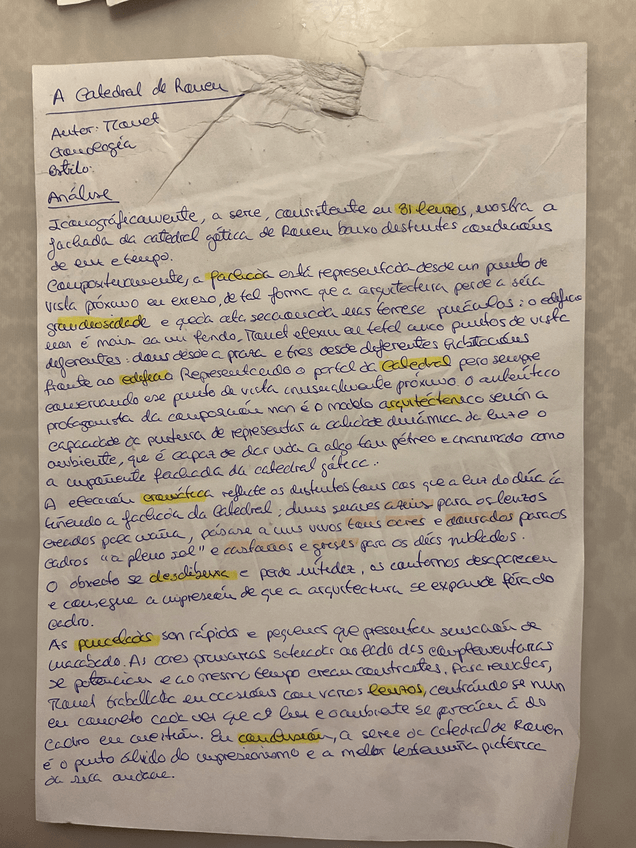 A Catedral de Rouen
Autor: Monet
Cronología
Estilo:
Análise
Iconográficamente, a serie, consistente en 31 lenzos, mostra a
fachada da catedral gótica de Rouen baixo distintas condicións
de luz e tempo.
Compositivamente, a fachada está representada desde un punto de
vista próximo en exceso, de tal forma que a arquitectura perde a súa
grandiosidade e queda seccionada nas torres e pináculos: o edificio
non é máis ca un fondo. Monet elixiu en total cinco puntos de vista
diferentes: dous desde a praza e tres desde diferentes habitacións
fronte ao edificio Representando o portal da Catedral pero sempre
conservando ese punto de vista inusualmente próximo. O auténtico
protagonista da composición non é o modelo arquitectónico senón a
capacidade da pintura de representar a calidade dinámica da luz e o
ambiente, que é capaz de dar vida a algo tan pétreo e inanimado como
a imponente fachada da catedral gótica.
A elección cromática reflicte os distintos tons cos que a luz do día ía
tinguindo a fachada da Catedral; duns suaves azuis para os lenzos
creados pola mañá, pásase a uns vivos tons ocres e dourados para os
cadros "a pleno sol" e castaños e grises para os días nubrados.
O obxecto se deslibuxa e perde nitidez, os contornos desaparecen
e consegue a impresión de que a arquitectura se expande fóra do
cadro.
As pinceladas son rápidas e pequenas que presentan sensación de
inacabado. As cores primarias situadas ao lado das complementarias
se potencian e ao mesmo tempo crean contrastes. Para rematar,
Monet traballaba en ocasións con varios lenzos, centrándose nun
en concreto cada vez que a luz e o ambiente se parecían á do
cadro en cuestión. En conclusión, a serie da catedral de Rouen
é o punto álxido do impresionismo e a mellor testemuña pictórica
da súa